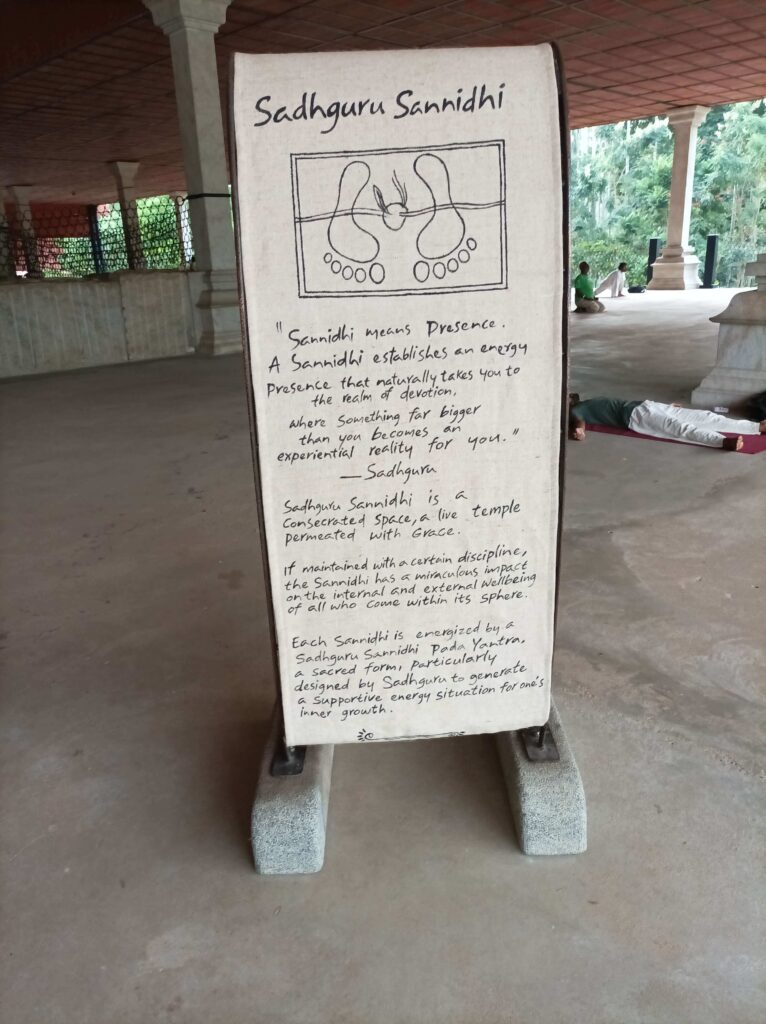 Sadhguru Sannidhi
"Sannidhi means Presence.
A Sannidhi establishes an energy
presence that naturally takes you to
the realm of devotion,
where something far bigger
than you becomes an
experiential reality for you."
—Sadhguru
Sadhguru Sannidhi is a
consecrated space, a live temple
permeated with Grace.
If maintained with a certain discipline,
the Sannidhi has a miraculous impact
on the internal and external wellbeing
of all who come within its sphere.
Each Sannidhi is energized by a
Sadhguru Sannidhi Pada Yantra,
a sacred form, particularly
designed by Sadhguru to generate
a supportive energy situation for one's
inner growth.